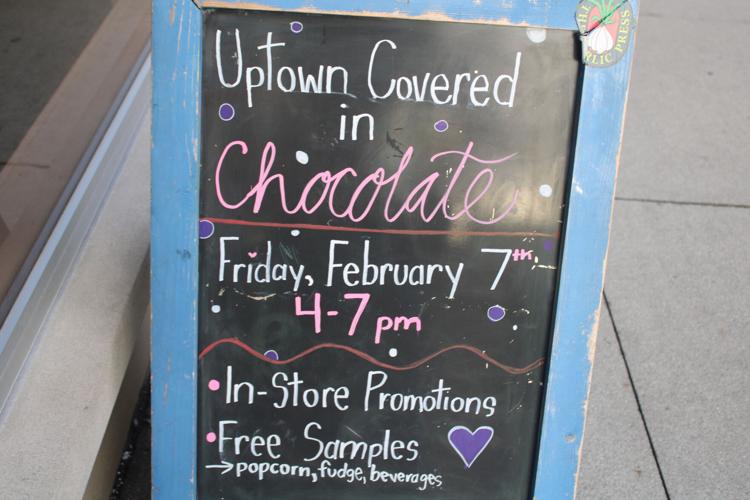 Uptown Covered
in
Chocolate
Friday, February 7th
4-7 pm
• In-Store Promotions
• Free Samples
→ popcorn, fudge, beverages
GARLIC PRESS